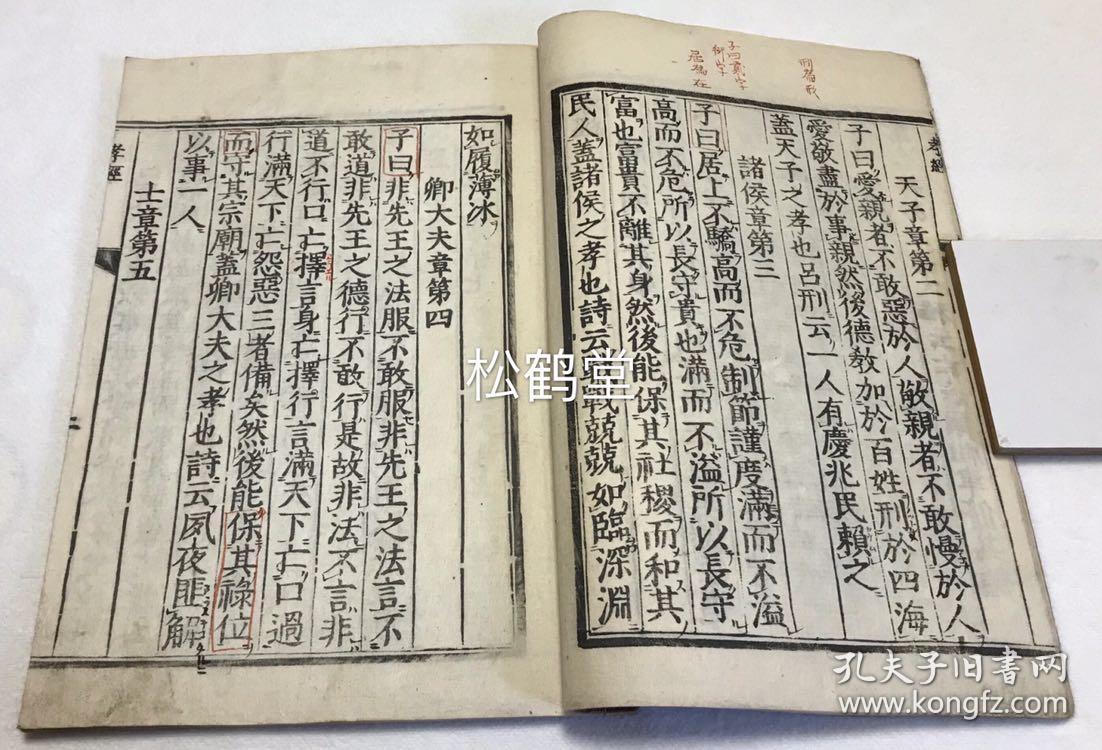 孝經
天子章第二
子曰愛親者不敢惡於人敬親者不敢慢於人
愛敬盡於事親然後德教加於百姓刑於四海
蓋天子之孝也呂刑云一人有慶兆民賴之
諸侯章第三
子曰居上不驕高而不危制節謹度滿而不溢
高而不危所以長守貴也滿而不溢所以長守
富也富貴不離其身然後能保其社稷而和其
民人蓋諸侯之孝也詩云戰戰兢兢如臨深淵
如履薄冰
卿大夫章第四
子曰非先王之法服不敢服非先王之法言不
敢道非先王之德行不敢行是故非法不言非
道不行口亡擇言身亡擇行言滿天下亡口過
行滿天下亡怨惡三者備矣然後能保其祿位
而守其宗廟蓋卿大夫之孝也詩云夙夜匪解
以事一人
士章第五
孝經
二
松鹤堂
孔夫子旧书网
www.kongfz.com